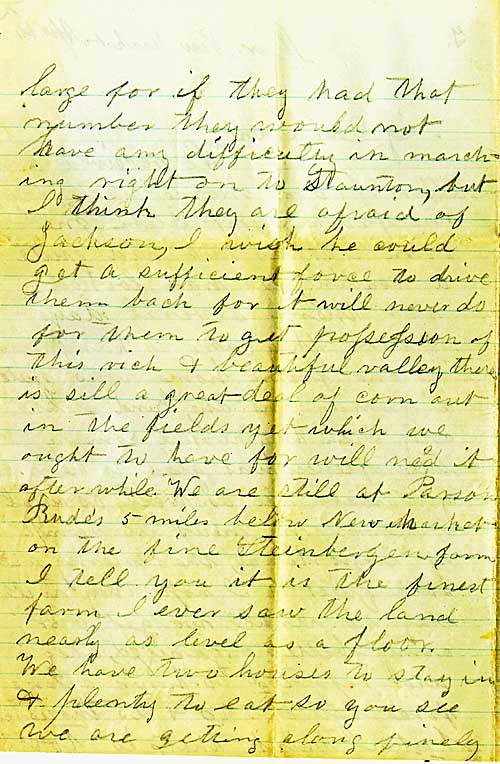 large for if they had that
number they would not
have any difficulty in march-
ing right on to Staunton, but
I think they are afraid of
Jackson, I wish he could
get a sufficient force to drive
them back for it will never do
for them to get possession of
this rich & beautiful valley, there
is sill a great deal of corn out
in the fields yet which we
ought to have for will need it
afterwhile. We are still at Parson
Rude's 5 miles below New Market
on the fine Steinbergen farm
I tell you it is the finest
farm I ever saw the land
nearly as level as a floor.
We have two houses to stay in
& plenty to eat so you see
we are getting along finely